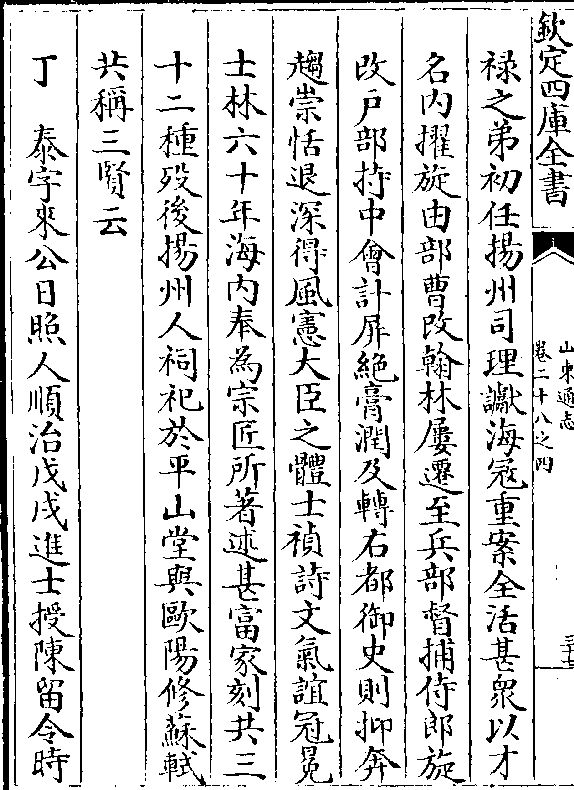 欽定四庫全書
山東通志
卷二十八之四
三十七
祿之弟初任揚州司理讞海冦重案全活甚衆以才
名内擢旋由部曹改翰林屢遷至兵部督捕侍郎旋
改户部持中㑹計屏絶膏潤及轉右都御史則抑奔
趨崇恬退深得風憲大臣之體士禎詩文氣誼冠冕
士林六十年海内奉為宗匠所著述甚富家刻共三
十二種殁後揚州人祠祀於平山堂與歐陽修蘇軾
共稱三賢云
丁　泰字來公日照人順治戊戌進士授陳留令時